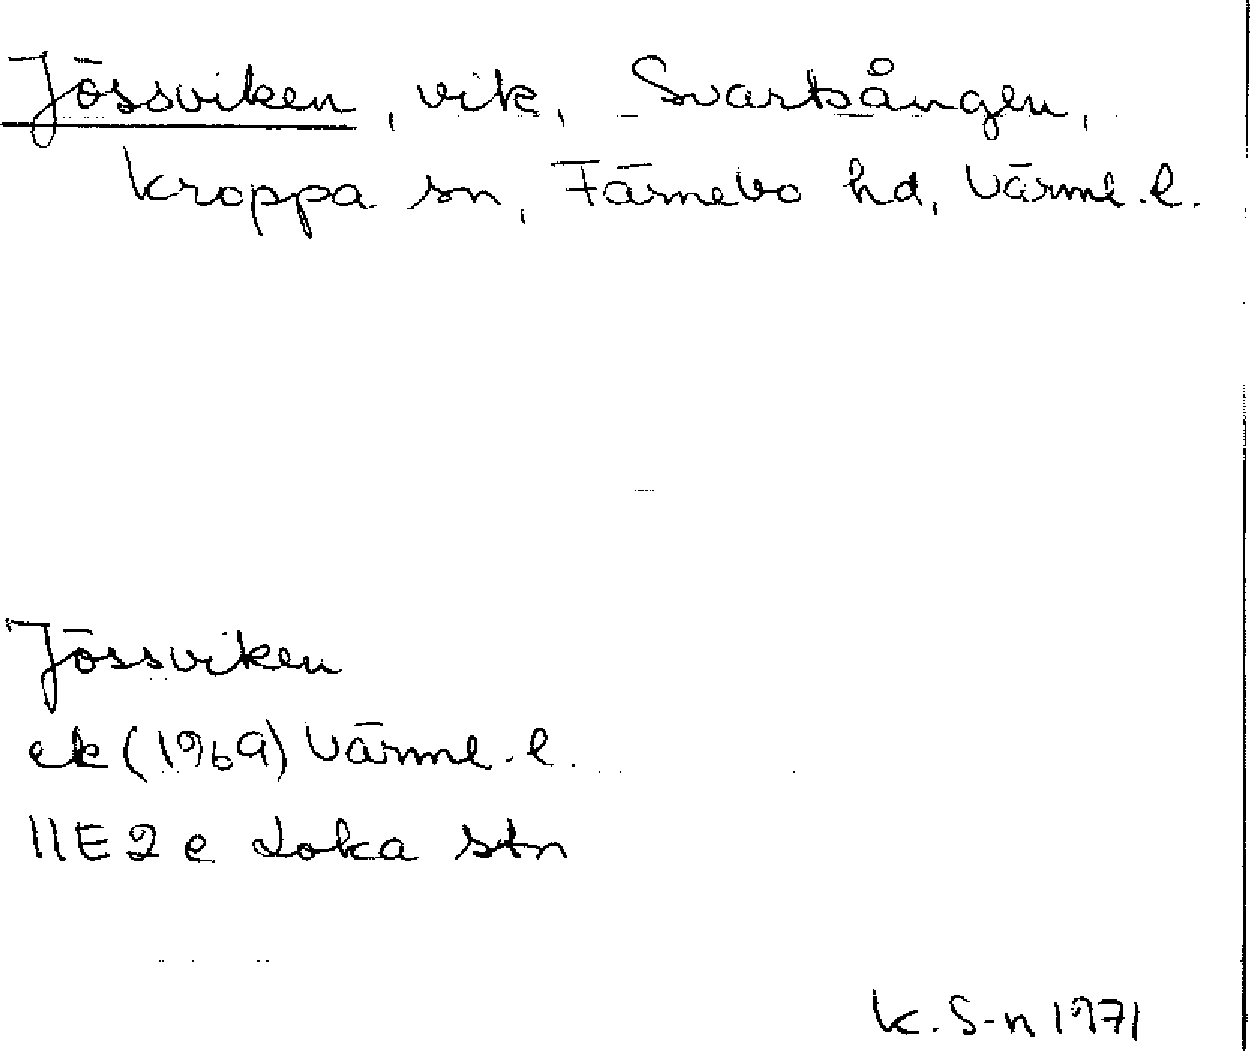 Jössviken, vik, Svartsången,
Kroppa sn, Färnebo hd, Värml. l.
Jössviken
ek (1969) Värml. l.
11E2e Loka stn
K. S-n 1971